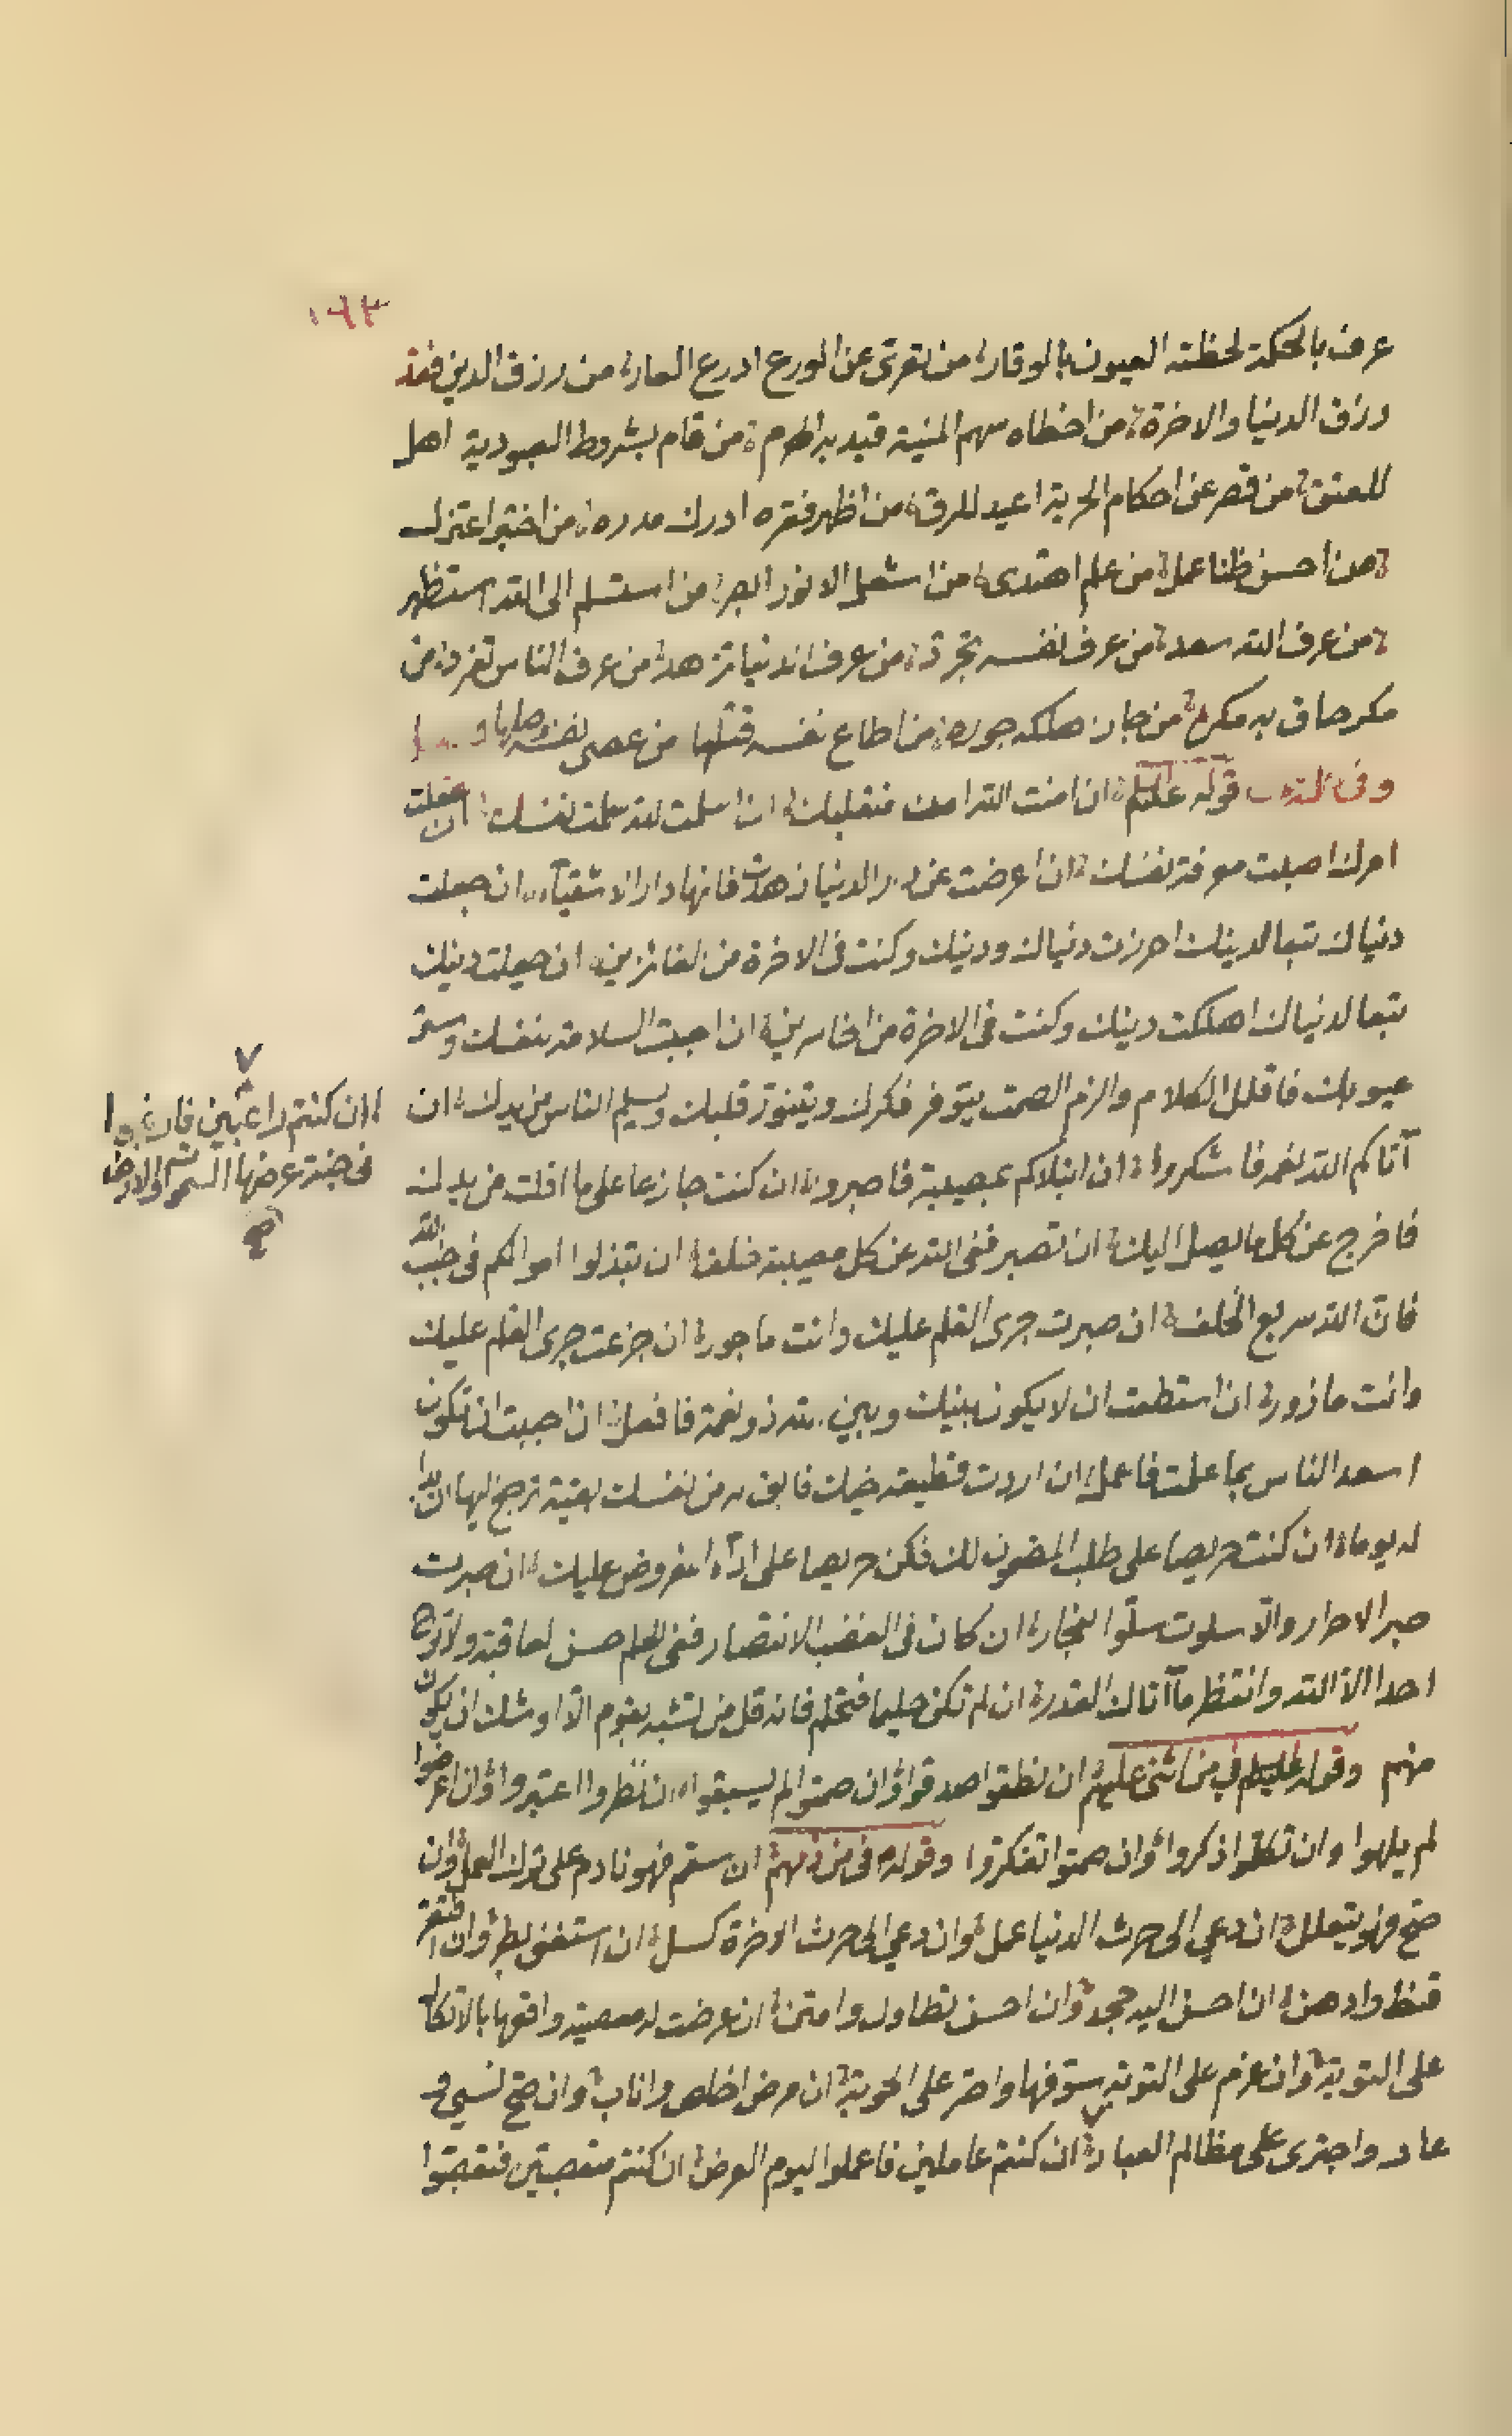 ١٦٣
عرف بالحكمة لحظته العيون بالوقار؛ من تعرّى عن الورع ادرع العار؛ من رزق الدين فقد
رزق الدنيا والاخرة؛ من اخطاه سهم المنية قيده الهرم؛ من قام بشروط العبودية اهل
للعتق؛ من قصر عن احكام الحرية اعيد للرق؛ من اظهر فقره ادرك؛ من اختبر اعتزل
؛ من احسن ظنا عمل؛ من علم اهتدى؛ من استسلم الى الله استظهر
؛ من عرف الله سعد؛ من عرف نفسه تجرد؛ من عرف الدنيا تزهد؛ من عرف الناس تفرد؛ من
مكر حاق به مكره؛ من جار اهلكه جوره؛ من اطاع نفسه قتلها من عصى نفسه وصلها
قوله عليه السلم ان امنت بالله امن منقلبك؛ ان اسلمت لله سلمت نفسك؛ ان عقلت
امرك اصبت معرفة نفسك؛ ان اعرضت عن دار الدنيا زهدت فانها دار الاشقياء؛ ان جعلت
دنياك تبعا لدينك احرزت دنياك ودينك وكنت فى الاخرة من الفائزين؛ ان جعلت دينك
تبعا لدنياك اهلكت دينك وكنت فى الاخرة من الخاسرين؛ ان احببت السلامة لنفسك وستر
عيوبك فاقلل الكلام والزم الصمت يتوفر فكرك ويتنور قلبك ويسلم الناس من يدك؛ ان
ان كنتم راغبين فارغبوا
فى جنة عرضها السموات والارض
صح
آتاكم الله نعمه فاشكروا؛ ان ابتلاكم بمصيبة فاصبروا؛ ان كنت جازعا على ما افلت من يدك
فاجزع عن كل ما لم يصل اليك؛ ان تصبر ففى الله عن كل مصيبة خلف؛ ان تبذلوا اموالكم فى جنب الله
فان الله سريع الخلف؛ ان صبرت جرى القلم عليك وانت ماجور؛ ان جزعت جرى القلم عليك
وانت مازور؛ ان استطعت ان لا يكون بينك وبين الله ذو نعمة فافعل؛ ان احببت ان تكون
اسعد الناس بما علمت فاعمل؛ ان اردت قطيعة اخيك فابق له من نفسك بقية يرجع اليها ان بدا
له يوما؛ ان كنت حريصا على طلب المضمون لك فكن حريصا على اداء المفروض عليك؛ ان صبرت
صبر الاحرار والا سلوت سلو الاغمار؛ ان كان فى الغضب الانتصار ففى الحلم حسن العاقبة ولا ترج
احدا الا الله وانتظر ما آتاك القدر؛ ان لم تكن حليما فتحلم فانه قل من تشبه بقوم الا اوشك ان يكون
منهم وقوله عليه السلم فى من اثنى عليهم ان نطقوا صدقوا وان صمتوا لم يسبقوا؛ ان نظروا اعتبروا وان اعرضوا
لم يلهوا وان تكلموا ذكروا وان صمتوا تفكروا وقوله فى من ذمهم ان سقم فهو نادم على ترك العمل وان
صح فهو يتعلل؛ ان دعي الى حرث الدنيا عمل وان دعي الى حرث الاخرة كسل؛ ان استغنى بطر وان افتقر
قنط واوهن؛ ان احسن اليه جحد وان احسن تطاول وامتن؛ ان عرضت له معصية واقعها بالاتكال
على التوبة وان عزم على التوبة سوفها واصر على الحوبة؛ ان مرض اخلص واناب وان صح نسي و
عاد واجترى على مظالم العباد؛ ان كنتم عاملين فاعملوا ليوم العرض؛ ان كنتم متعصبين فتعصبوا